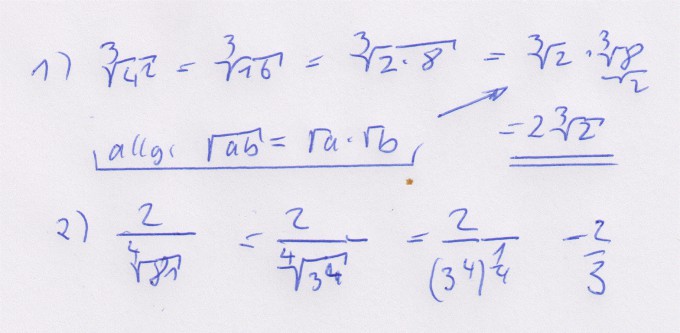 1) ∛4² = ∛16 = ∛2·8 = ∛2 · ∛8
2
allg. √ab = √a · √b = 2∛2
2) 2/∜81 = 2/∜3⁴ = 2/(3⁴)^¼ = 2/3